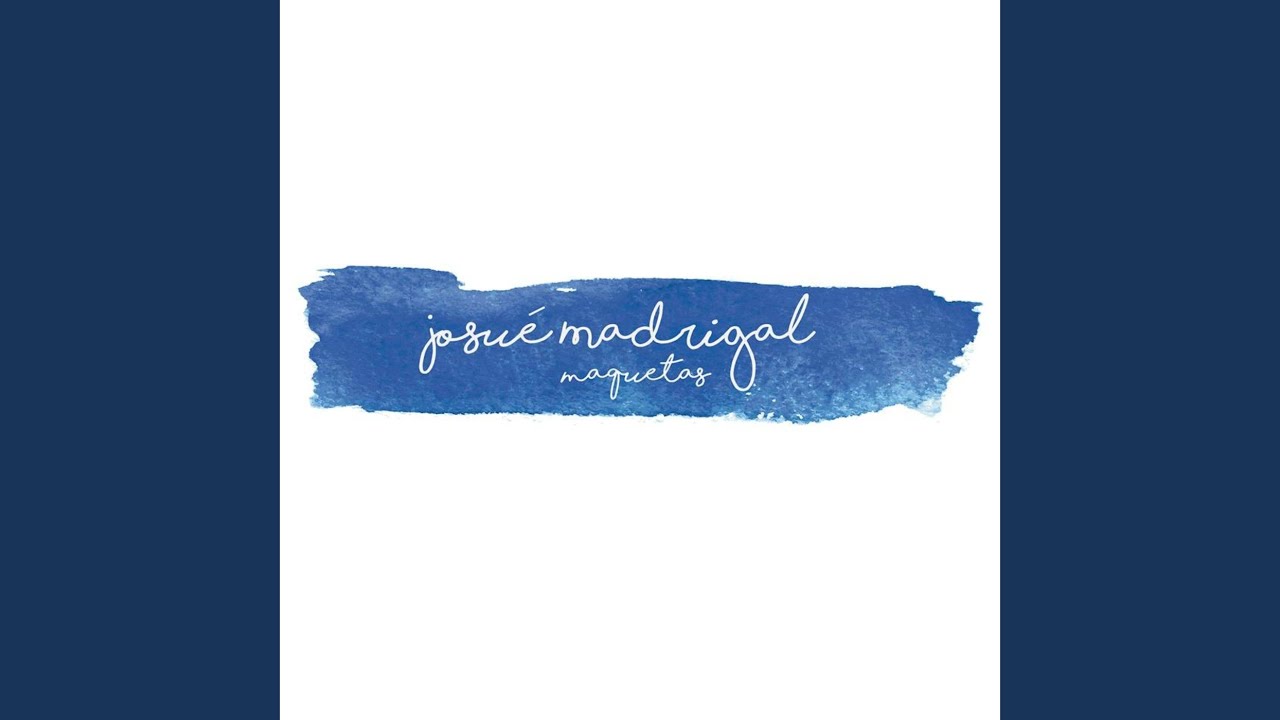 josué madrigal
maquetas